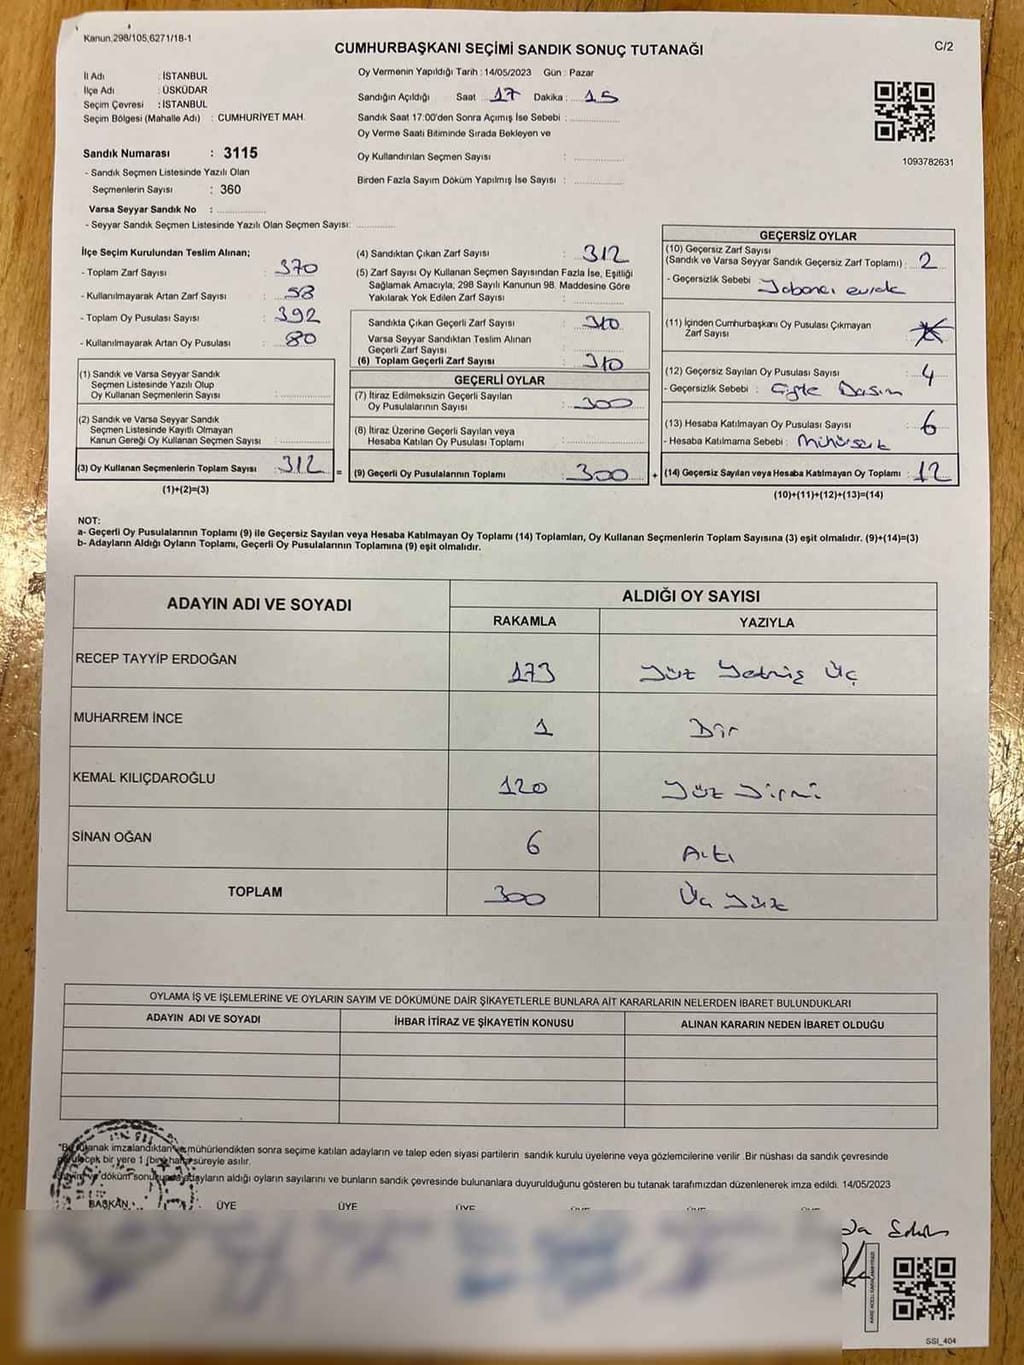 Kanun.298/105,6271/18-1
CUMHURBAŞKANI SEÇİMİ SANDIK SONUÇ TUTANAĞI
C/2
İl Adı : İSTANBUL
İlçe Adı : ÜSKÜDAR
Seçim Çevresi : İSTANBUL
Seçim Bölgesi (Mahalle Adı) : CUMHURİYET MAH.
Sandık Numarası : 3115
- Sandık Seçmen Listesinde Yazılı Olan
Seçmenlerin Sayısı : 360
Varsa Seyyar Sandık No : ..............
- Seyyar Sandık Seçmen Listesinde Yazılı Olan Seçmen Sayısı: ............
Oy Vermenin Yapıldığı Tarih : 14/05/2023 Gün : Pazar
Sandığın Açıldığı Saat 17 Dakika : 15
Sandık Saat 17:00'den Sonra Açımış İse Sebebi : ..............
Oy Verme Saati Bitiminde Sırada Bekleyen ve
Oy Kullandırılan Seçmen Sayısı : ..............
Birden Fazla Sayım Döküm Yapılmış İse Sayısı : ..............
1093782631
İlçe Seçim Kurulundan Teslim Alınan;
- Toplam Zarf Sayısı : 370
- Kullanılmayarak Artan Zarf Sayısı : 58
- Toplam Oy Pusulası Sayısı : 392
- Kullanılmayarak Artan Oy Pusulası : 80
(1) Sandık ve Varsa Seyyar Sandık
Seçmen Listesinde Yazılı Olup
Oy Kullanan Seçmenlerin Sayısı : ..............
(2) Sandık ve Varsa Seyyar Sandık
Seçmen Listesinde Kayıtlı Olmayan
Kanun Gereği Oy Kullanan Seçmen Sayısı : ..............
(3) Oy Kullanan Seçmenlerin Toplam Sayısı : 312 =
(1)+(2)=(3)
(4) Sandıktan Çıkan Zarf Sayısı : 312
(5) Zarf Sayısı Oy Kullanan Seçmen Sayısından Fazla İse, Eşitliği
Sağlamak Amacıyla; 298 Sayılı Kanunun 98. Maddesine Göre
Yakılarak Yok Edilen Zarf Sayısı : ..............
Sandıkta Çıkan Geçerli Zarf Sayısı : 310
Varsa Seyyar Sandıktan Teslim Alınan
Geçerli Zarf Sayısı : ..............
(6) Toplam Geçerli Zarf Sayısı : 310
GEÇERLİ OYLAR
(7) İtiraz Edilmeksizin Geçerli Sayılan
Oy Pusulalarının Sayısı : 300
(8) İtiraz Üzerine Geçerli Sayılan veya
Hesaba Katılan Oy Pusulası Toplamı : ..............
(9) Geçerli Oy Pusulalarının Toplamı : 300 +
GEÇERSİZ OYLAR
(10) Geçersiz Zarf Sayısı
(Sandık ve Varsa Seyyar Sandık Geçersiz Zarf Toplamı) : 2
- Geçersizlik Sebebi : Yabancı evrak
(11) İçinden Cumhurbaşkanı Oy Pusulası Çıkmayan
Zarf Sayısı :
(12) Geçersiz Sayılan Oy Pusulası Sayısı : 4
- Geçersizlik Sebebi : Çifte Basım
(13) Hesaba Katılmayan Oy Pusulası Sayısı : 6
- Hesaba Katılmama Sebebi : Mühürsük
(14) Geçersiz Sayılan veya Hesaba Katılmayan Oy Toplamı : 12
(10)+(11)+(12)+(13)=(14)
NOT:
a- Geçerli Oy Pusulalarının Toplamı (9) ile Geçersiz Sayılan veya Hesaba Katılmayan Oy Toplamı (14) Toplamları, Oy Kullanan Seçmenlerin Toplam Sayısına (3) eşit olmalıdır. (9)+(14)=(3)
b- Adayların Aldığı Oyların Toplamı, Geçerli Oy Pusulalarının Toplamına (9) eşit olmalıdır.
ADAYIN ADI VE SOYADI
ALDIĞI OY SAYISI
RAKAMLA YAZIYLA
RECEP TAYYİP ERDOĞAN 173 Yüz Yetmiş Üç
MUHARREM İNCE 1 Bir
KEMAL KILIÇDAROĞLU 120 Yüz Yirmi
SİNAN OĞAN 6 Altı
TOPLAM 300 Üç Yüz
OYLAMA İŞ VE İŞLEMLERİNE VE OYLARIN SAYIM VE DÖKÜMÜNE DAİR ŞİKAYETLERLE BUNLARA AİT KARARLARIN NELERDEN İBARET BULUNDUKLARI
ADAYIN ADI VE SOYADI İHBAR İTİRAZ VE ŞİKAYETİN KONUSU ALINAN KARARIN NEDEN İBARET OLDUĞU
imzalandıktan ve mühürlendikten sonra seçime katılan adayların ve talep eden siyasi partilerin sandık kurulu üyelerine veya gözlemcilerine verilir .Bir nüshası da sandık çevresinde
bir yere 1 (bir) hafta süreyle asılır.
döküm sonucunda adayların aldığı oyların sayılarını ve bunların sandık çevresinde bulunanlara duyurulduğunu gösteren bu tutanak tarafımızdan düzenlenerek imza edildi. 14/05/2023
BAŞKAN ÜYE ÜYE ÜYE
SSI_404